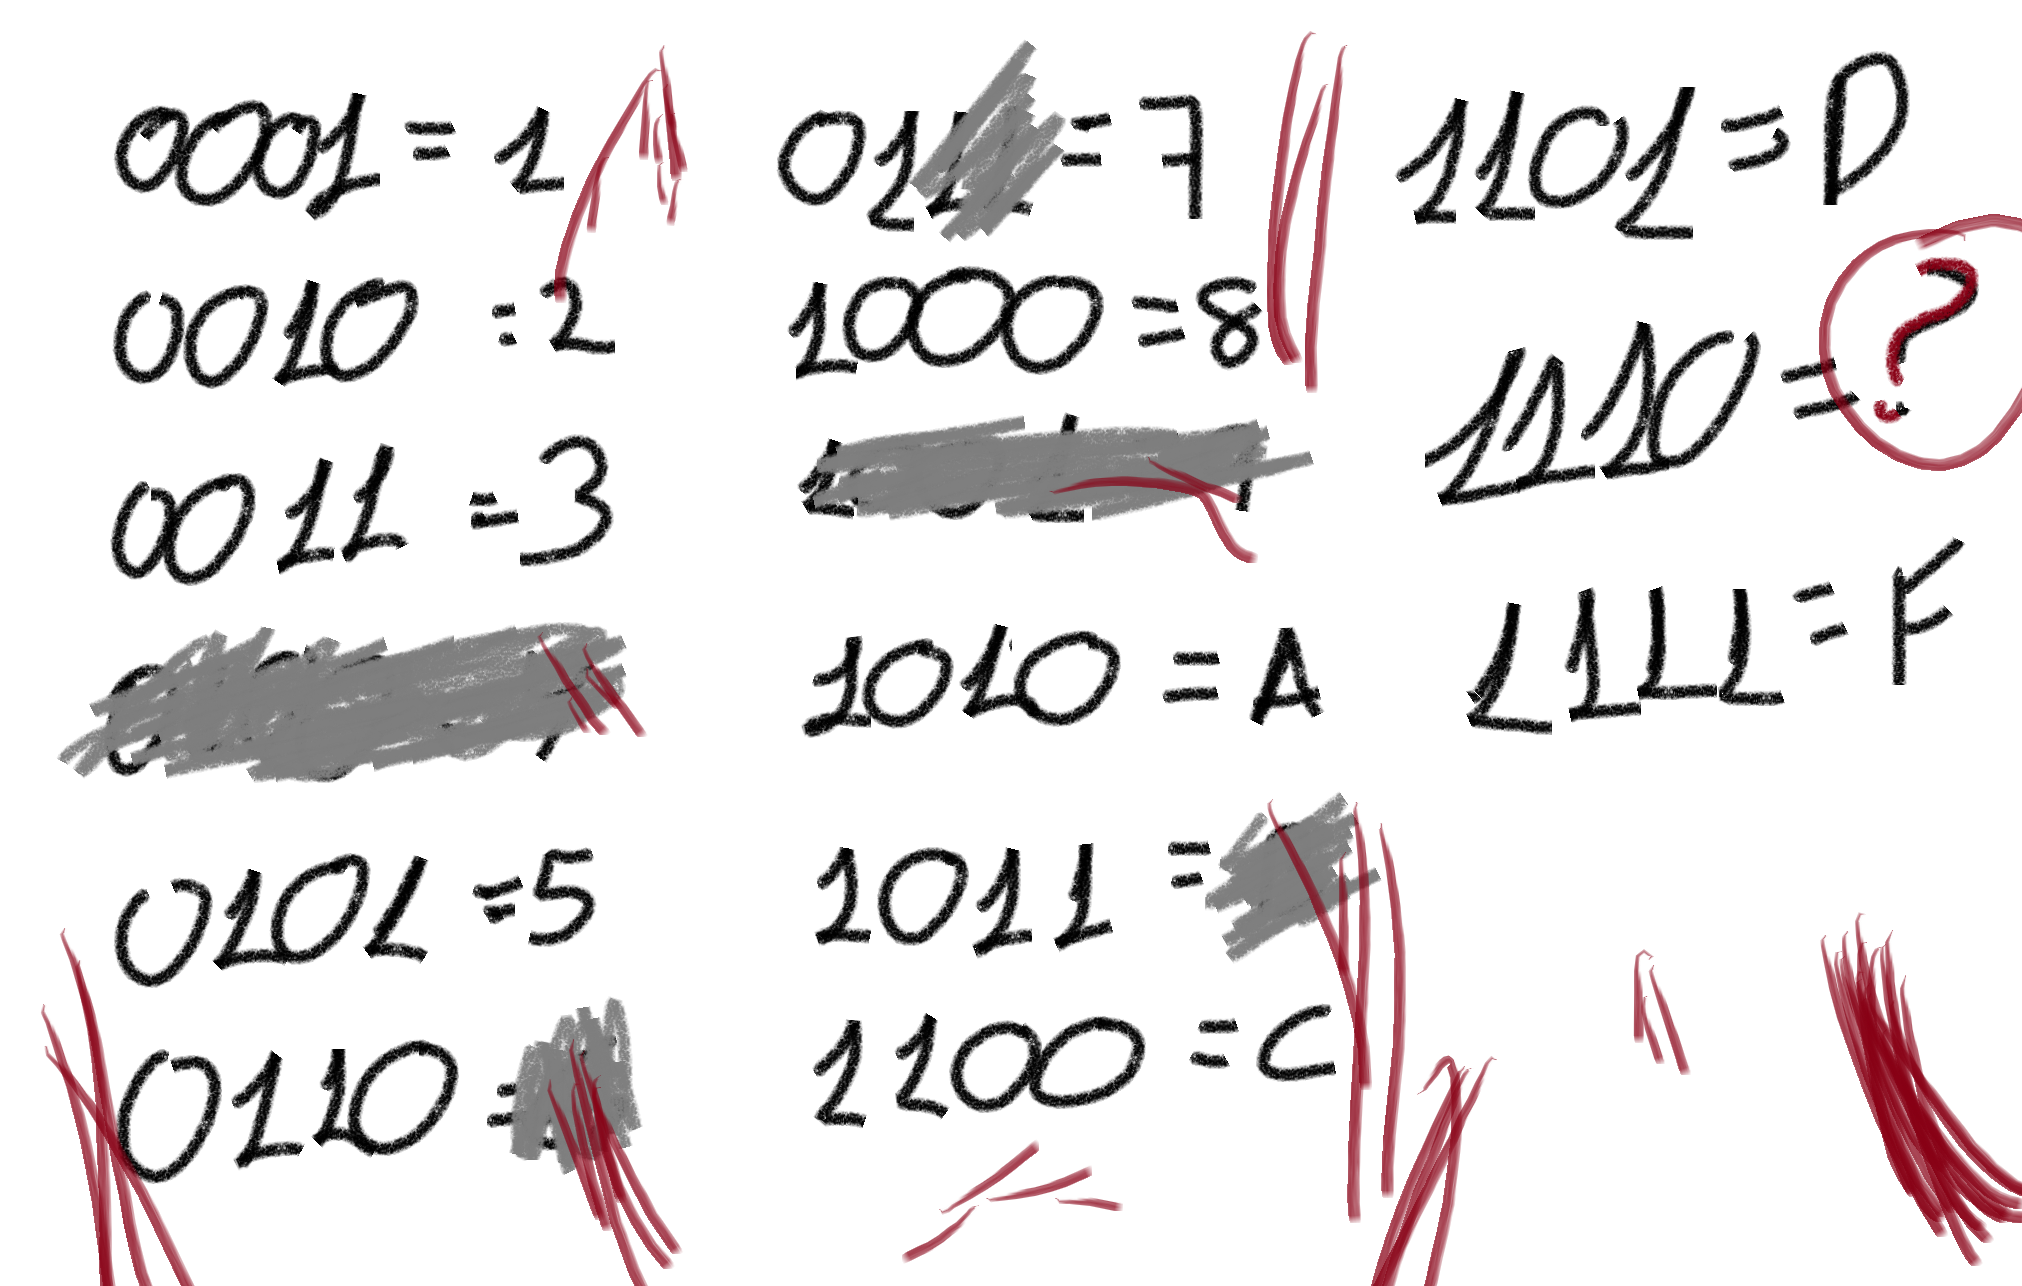 0001 = 1
0010 = 2
0011 = 3
0101 = 5
0110 =
01 = 7
1000 = 8
1010 = A
1011 =
1100 = C
1101 = D
1110 = ?
1111 = F